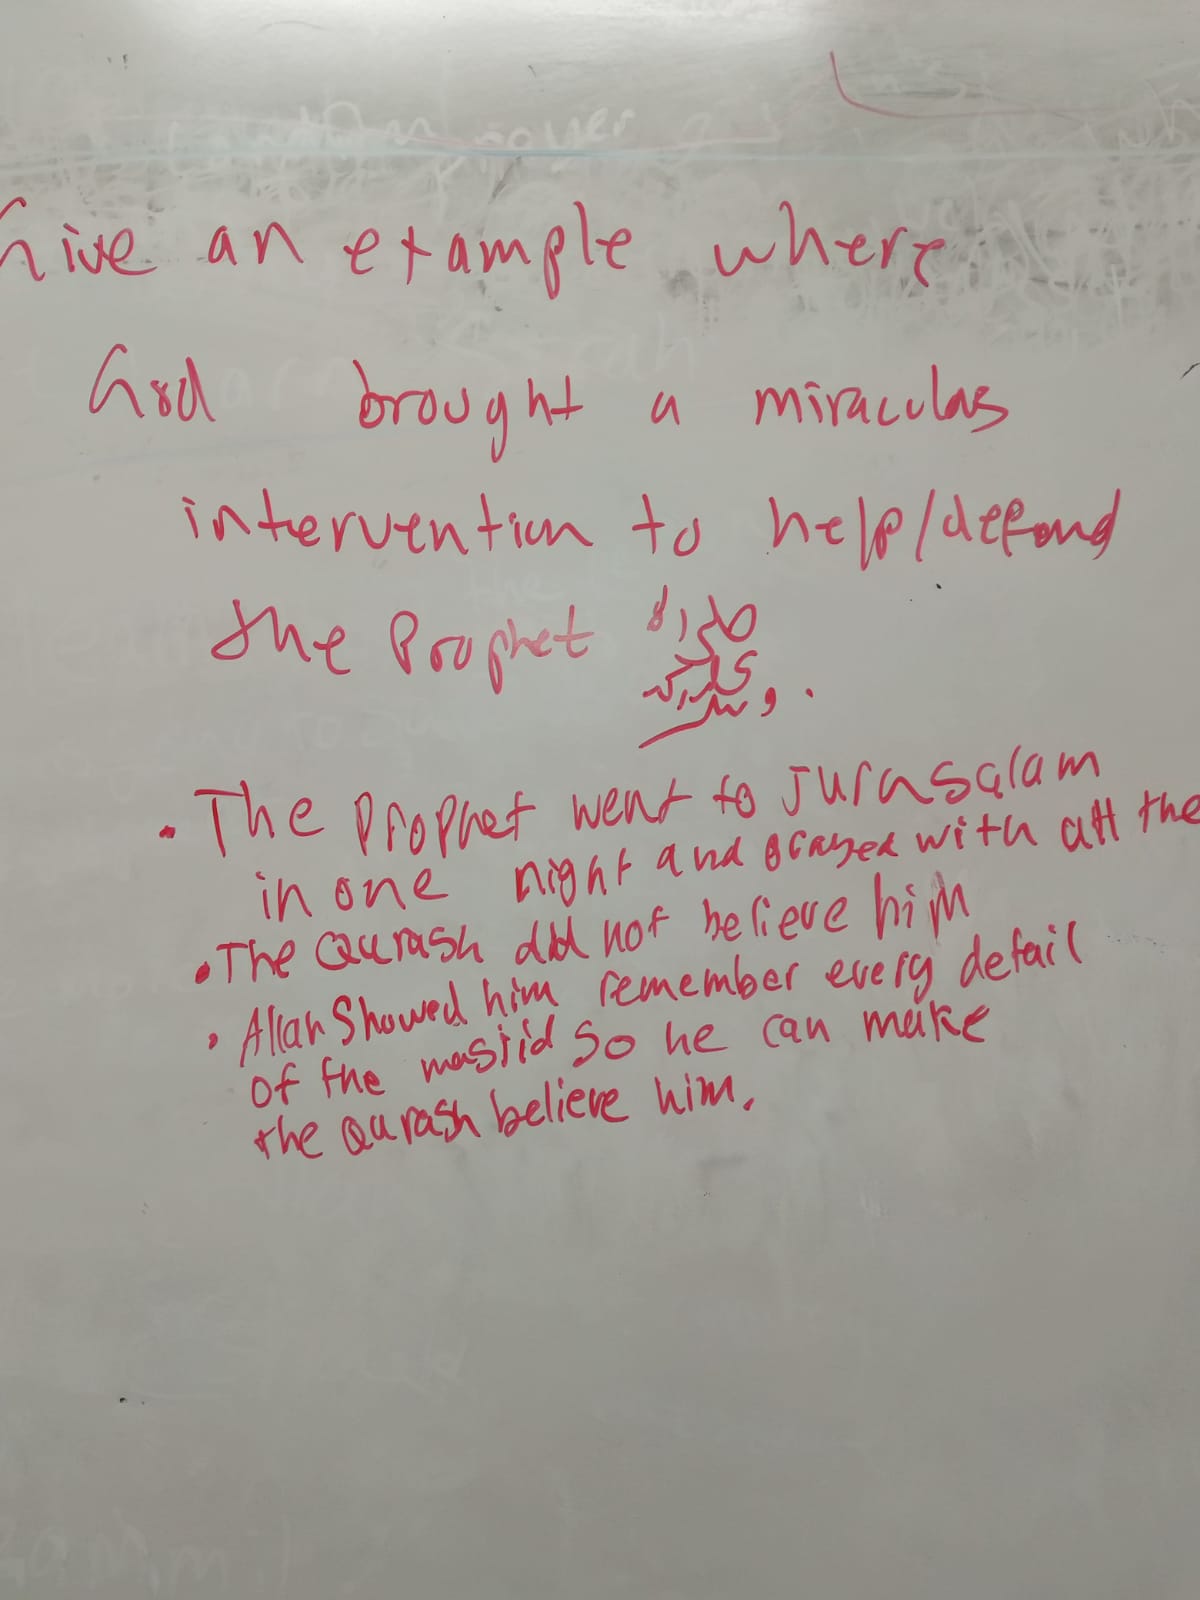 Give an example where
God brought a miraculas
intervention to help/defend
the Prophet صلى الله عليه وسلم.
• The Prophet went to Jurasalam
in one night and prayed with all the
• The Qurash did not believe him
• Allah Showed him remember every detail
of the masjid so he can make
the Qurash believe him.